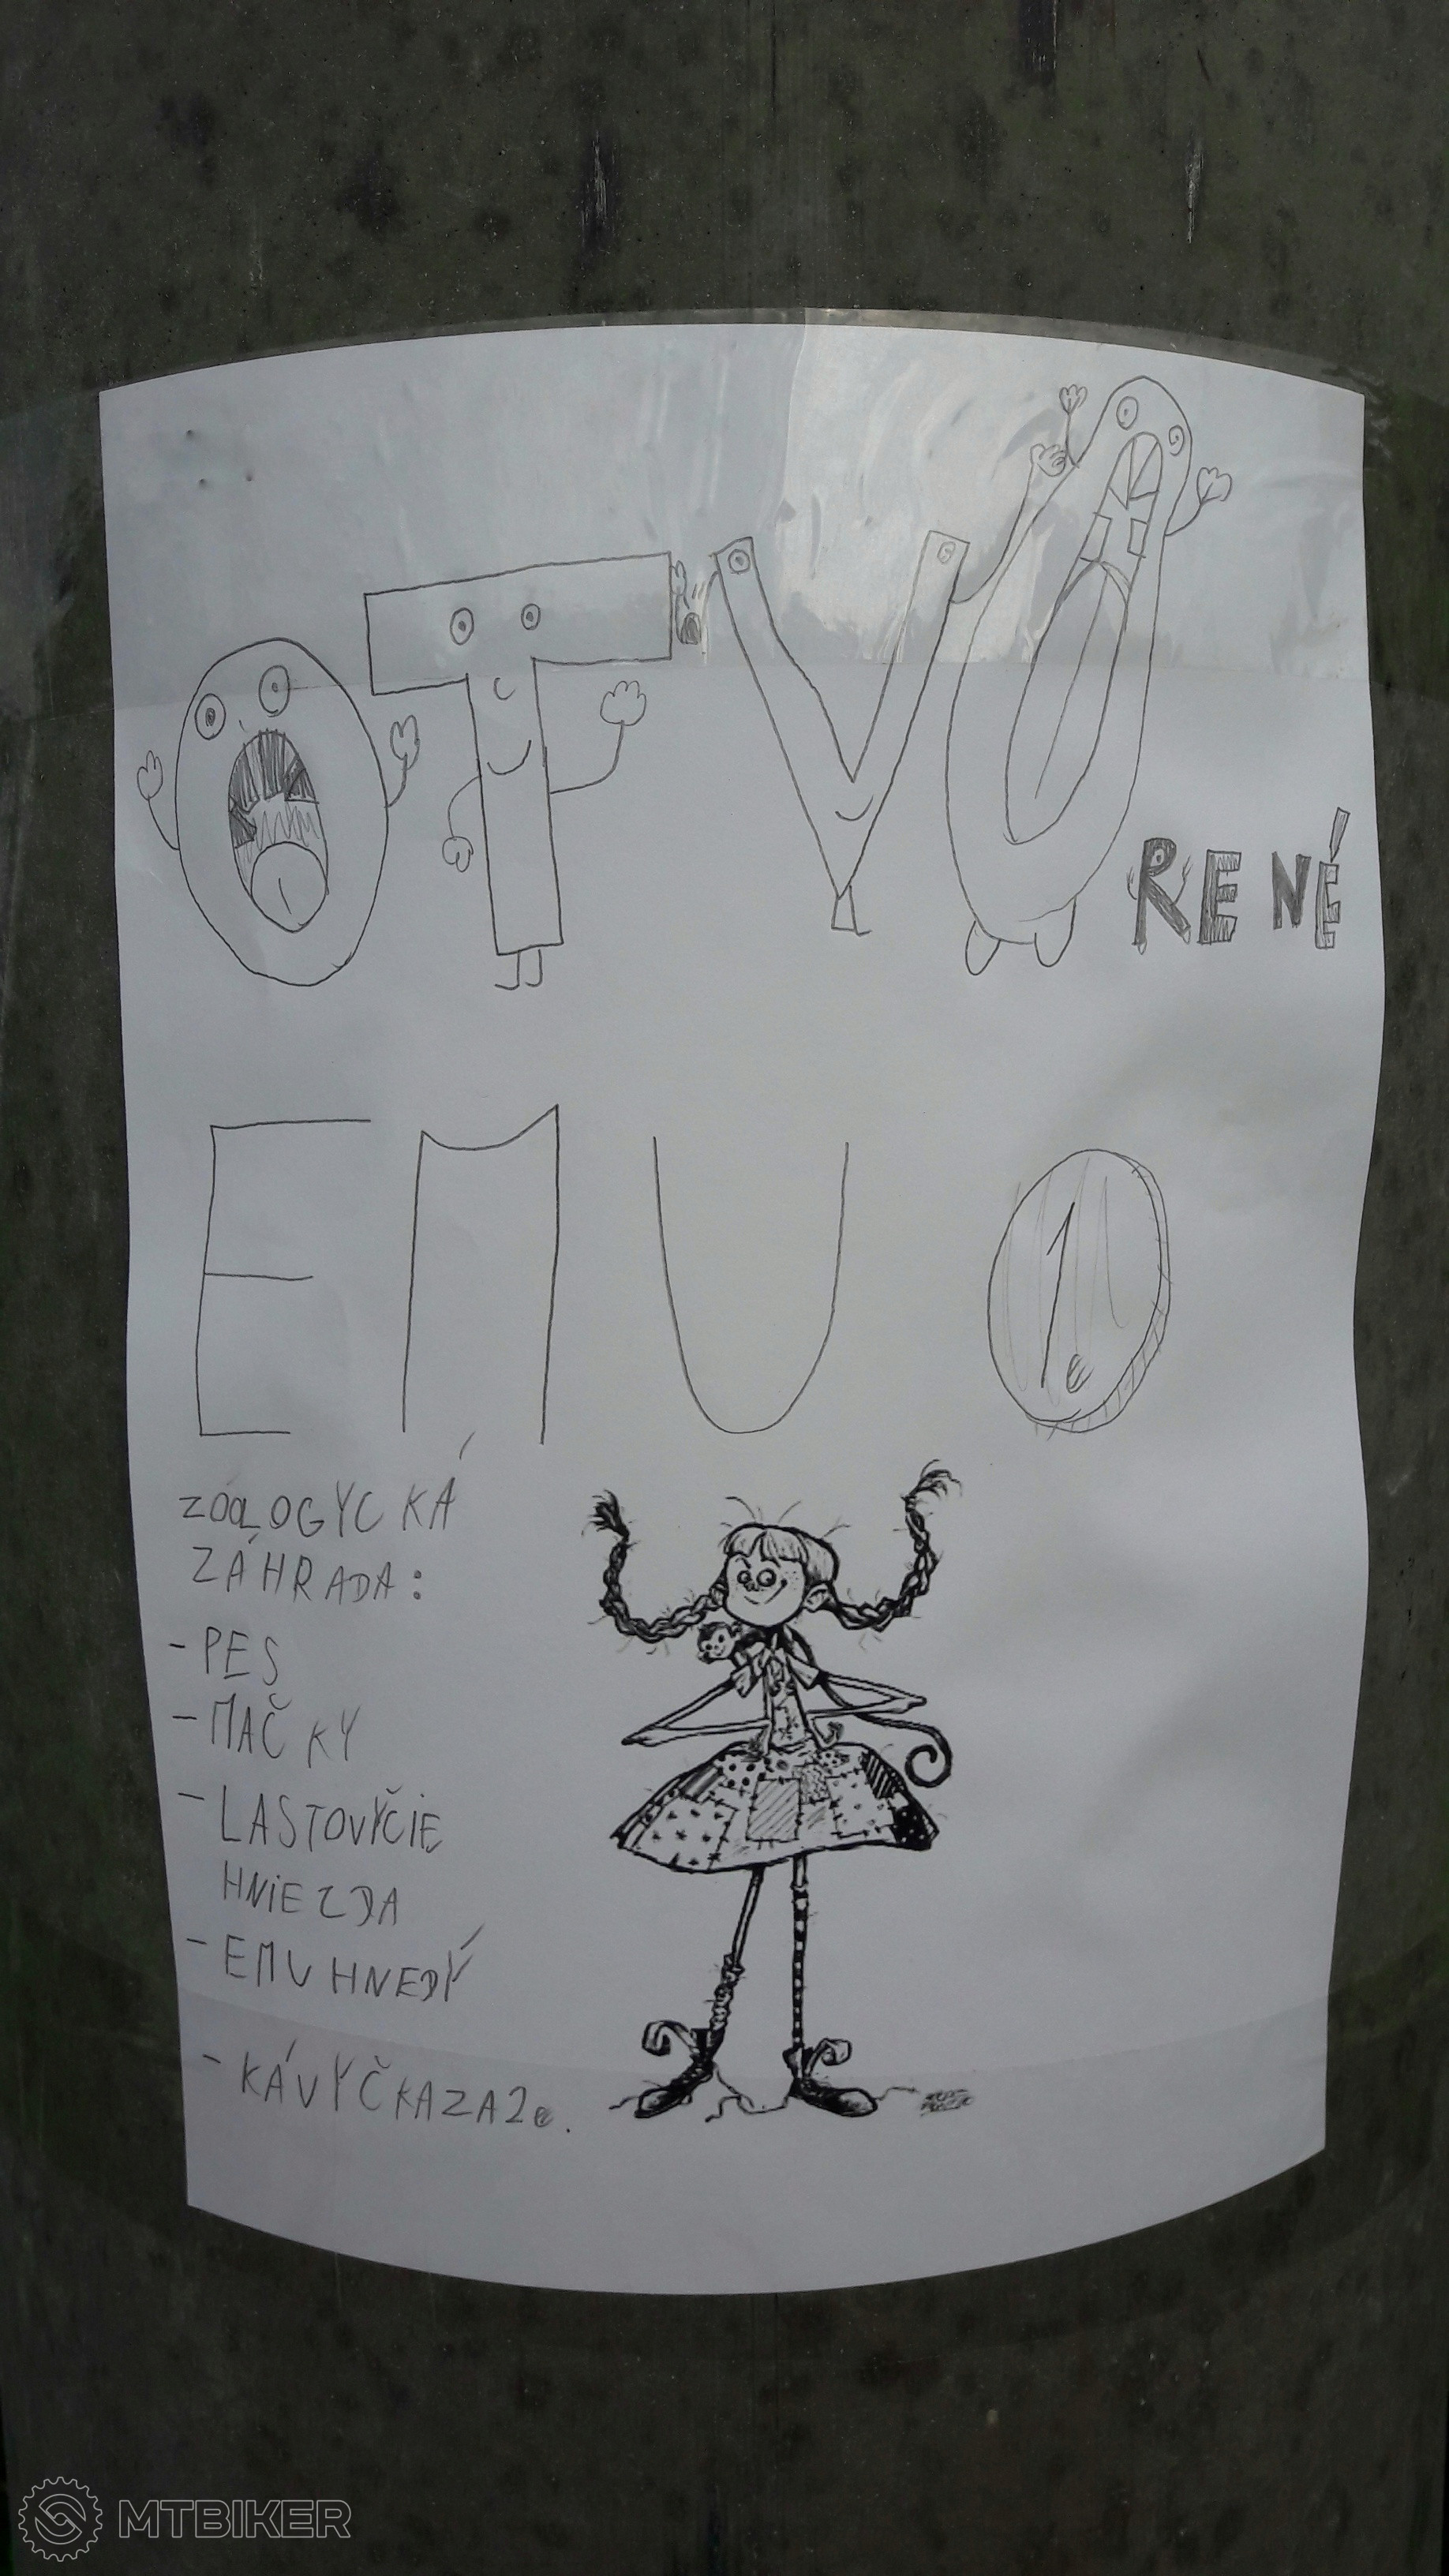 OTVORENÉ
EMU 1e
ZOOLOGYCKÁ
ZÁHRADA:
- PES
- MAČKY
- LASTOVYČIE
HNIEZDA
- EMU HNEDÝ
- KÁVYČKA ZA 2e.
MTBIKER